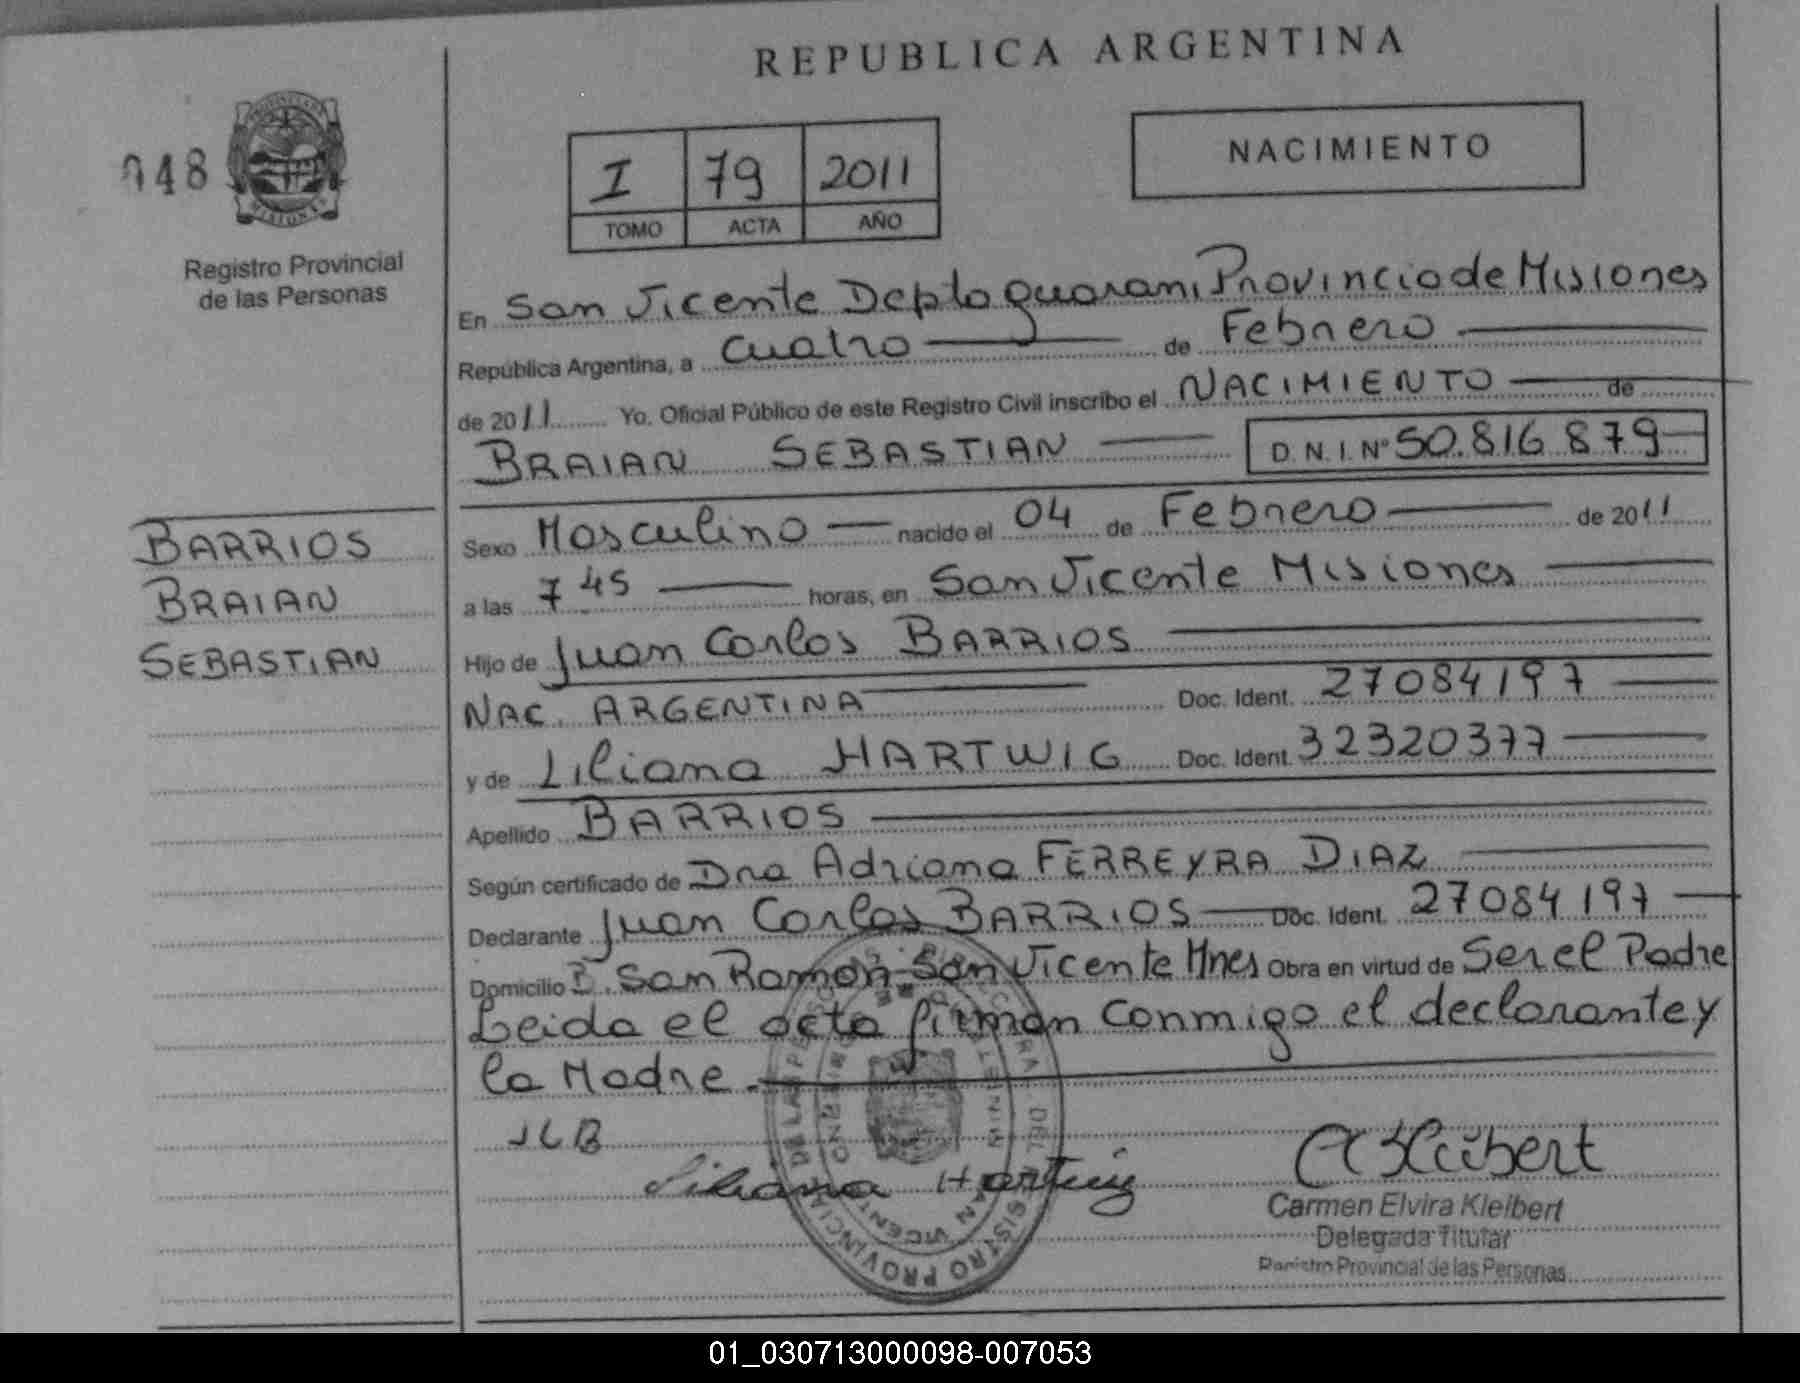 REPUBLICA ARGENTINA
048
PROVINCIA DE MISIONES
Registro Provincial
de las Personas
I 79 2011
TOMO ACTA AÑO
NACIMIENTO
En San Vicente Depto guarani Provincia de Misiones
República Argentina, a cuatro de Febrero
de 2011 Yo. Oficial Público de este Registro Civil inscribo el NACIMIENTO de
BRAIAN SEBASTIAN D.N.I. Nº 50.816.879
BARRIOS
BRAIAN
SEBASTIAN
Sexo Masculino nacido el 04 de Febrero de 2011
a las 7 45 horas, en San Vicente Misiones
Hijo de Juan Carlos BARRIOS
NAC. ARGENTINA Doc. Ident. 27084197
y de Liliana HARTWIG Doc. Ident. 32320377
Apellido BARRIOS
Según certificado de Dra Adriana FERREYRA DIAZ
Declarante Juan Carlos BARRIOS Doc. Ident. 27084197
Domicilio B. San Ramon San Vicente Mnes Obra en virtud de Ser el Padre
Leida el acta firman conmigo el declarante y
la Madre.
JCB
Liliana Hartwig
Carmen Elvira Kleibert
Delegada Titular
Registro Provincial de las Personas
01_030713000098-007053